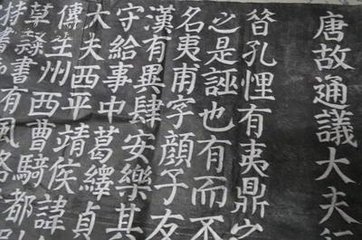 唐故通議大夫行
昔孔悝有夷鼎之
之是誣也有而不
名夷甫字顏子友
漢有異肆安樂其
守給事中葛繹貞
大夫西平靖侯諱
傳生州西曹騎都
草隸書有風格